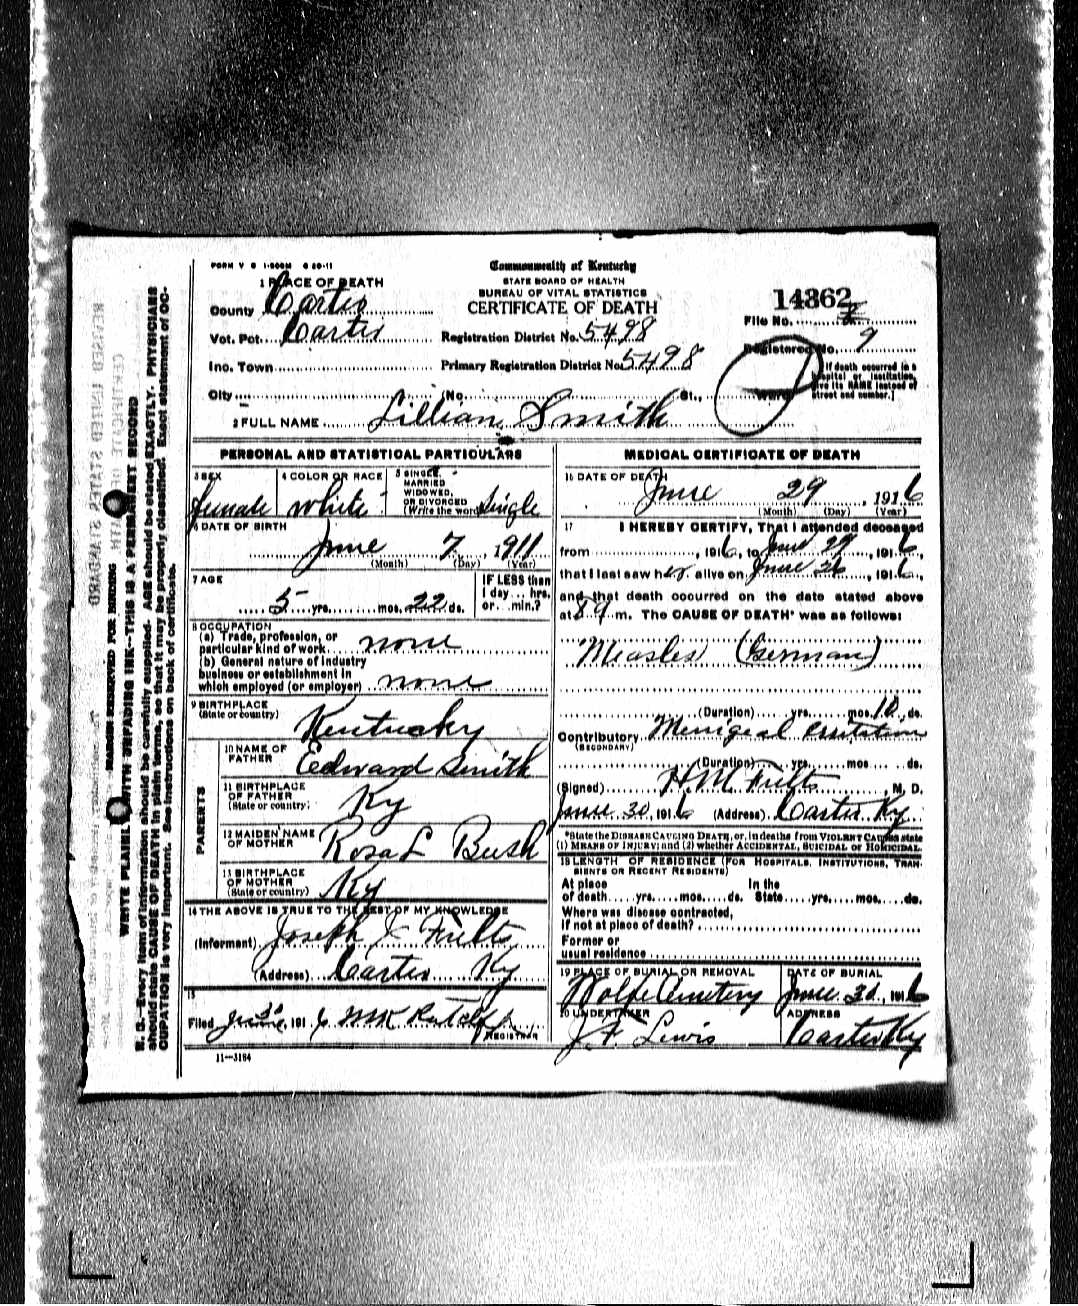 FORM V S 1-500M 6 20-11
Commonwealth of Kentucky
STATE BOARD OF HEALTH
BUREAU OF VITAL STATISTICS
CERTIFICATE OF DEATH
1 PLACE OF DEATH
County Carter
Vot. Pct. Carter
Inc. Town
City No. St., Ward
Registration District No. 5498
Primary Registration District No. 5498
14362
File No.
Registered No. 9
[If death occurred in a
hospital or institution,
give its NAME instead of
street and number.]
2 FULL NAME Lillian Smith
PERSONAL AND STATISTICAL PARTICULARS
3 SEX
female
4 COLOR OR RACE
white
5 SINGLE,
MARRIED
WIDOWED,
OR DIVORCED
(Write the word) Single
6 DATE OF BIRTH
June 7, 1911
(Month) (Day) (Year)
7 AGE
5 yrs. mos. 22 ds.
IF LESS than
1 day... hrs.
or... min.?
8 OCCUPATION
(a) Trade, profession, or
particular kind of work none
(b) General nature of industry
business or establishment in
which employed (or employer) none
9 BIRTHPLACE
(State or country) Kentucky
PARENTS
10 NAME OF
FATHER Edward Smith
11 BIRTHPLACE
OF FATHER
(State or country) Ky
12 MAIDEN NAME
OF MOTHER Rosa L Bush
13 BIRTHPLACE
OF MOTHER
(State or country) Ky
14 THE ABOVE IS TRUE TO THE BEST OF MY KNOWLEDGE
(Informant) Joseph Fults
(Address) Carter Ky
15
Filed June 30, 1916 REGISTRAR
11-3184
MEDICAL CERTIFICATE OF DEATH
16 DATE OF DEATH
June 29, 1916
(Month) (Day) (Year)
17 I HEREBY CERTIFY, That I attended deceased
from , 1916, to June 29, 1916,
that I last saw her alive on June 26, 1916,
and that death occurred on the date stated above
at m. The CAUSE OF DEATH* was as follows:
Measles (German)
(Duration) yrs. mos. 10 ds.
Contributory
(SECONDARY)
(Duration) yrs. mos. ds.
(Signed) H M Fults, M. D.
June 30, 1916 (Address) Carter Ky
*State the DISEASE CAUSING DEATH, or, in deaths from VIOLENT CAUSES state
(1) MEANS OF INJURY; and (2) whether ACCIDENTAL, SUICIDAL or HOMICIDAL.
18 LENGTH OF RESIDENCE (FOR HOSPITALS, INSTITUTIONS, TRAN-
SIENTS OR RECENT RESIDENTS)
At place In the
of death yrs. mos. ds. State yrs. mos. ds.
Where was disease contracted,
if not at place of death?
Former or
usual residence
19 PLACE OF BURIAL OR REMOVAL
Wolfe Cemetery
DATE OF BURIAL
June 30, 1916
20 UNDERTAKER
J. F. Lewis
ADDRESS
Carter Ky
MARGIN RESERVED FOR BINDING
WRITE PLAINLY WITH UNFADING INK-THIS IS A PERMANENT RECORD
N. B.-Every item of information should be carefully supplied. AGE should be stated EXACTLY. PHYSICIANS
should state CAUSE OF DEATH in plain terms, so that it may be properly classified. Exact statement of OC-
CUPATION is very important. See instructions on back of certificate.